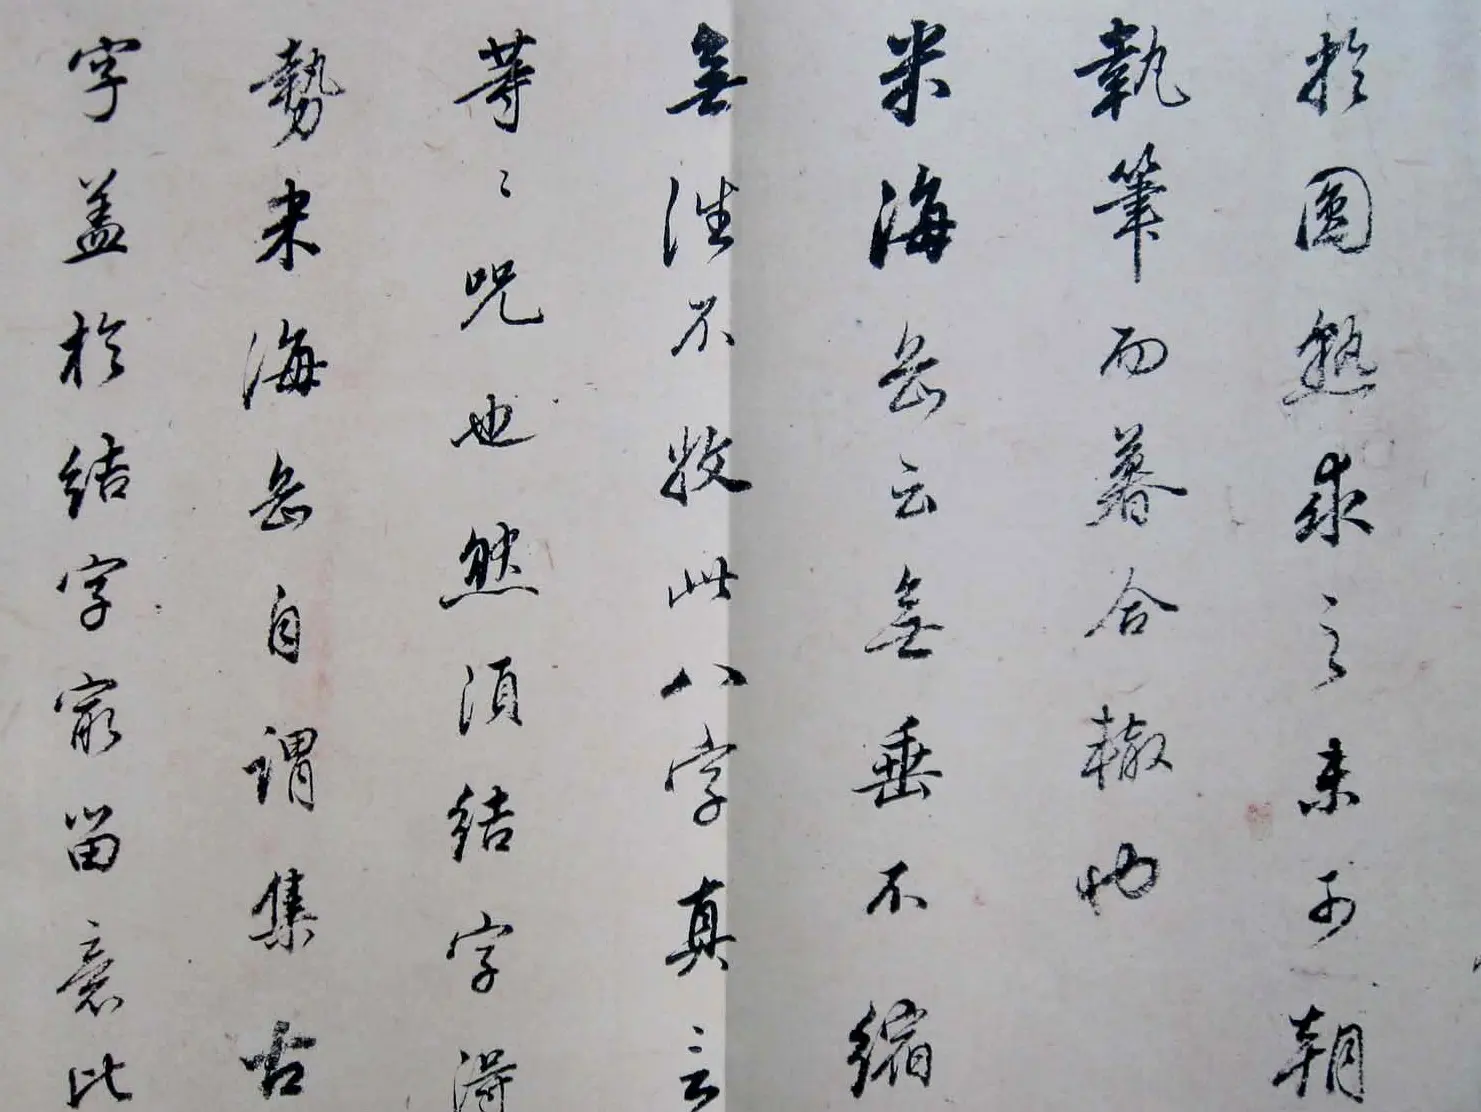 於圓熟求之未可朝
執筆而暮合轍也
米海岳云無垂不縮
無往不收此八字真言
等々咒也然須結字得
勢米海岳自謂集古
字盖於結字最留意比